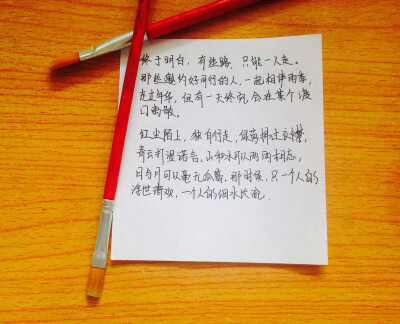 终于明白，有些路，只能一人走。
那些邀约好同行的人，一起相伴雨季，
走过年华，但有一天终究会在某个渡
口离散。
红尘陌上，独自行走，绿萝拂过衣襟，
青云打湿诺言，山和水可以两两相忘，
日与月可以毫无瓜葛，那时候，只一个人的
浮世清欢，一个人的细水长流.